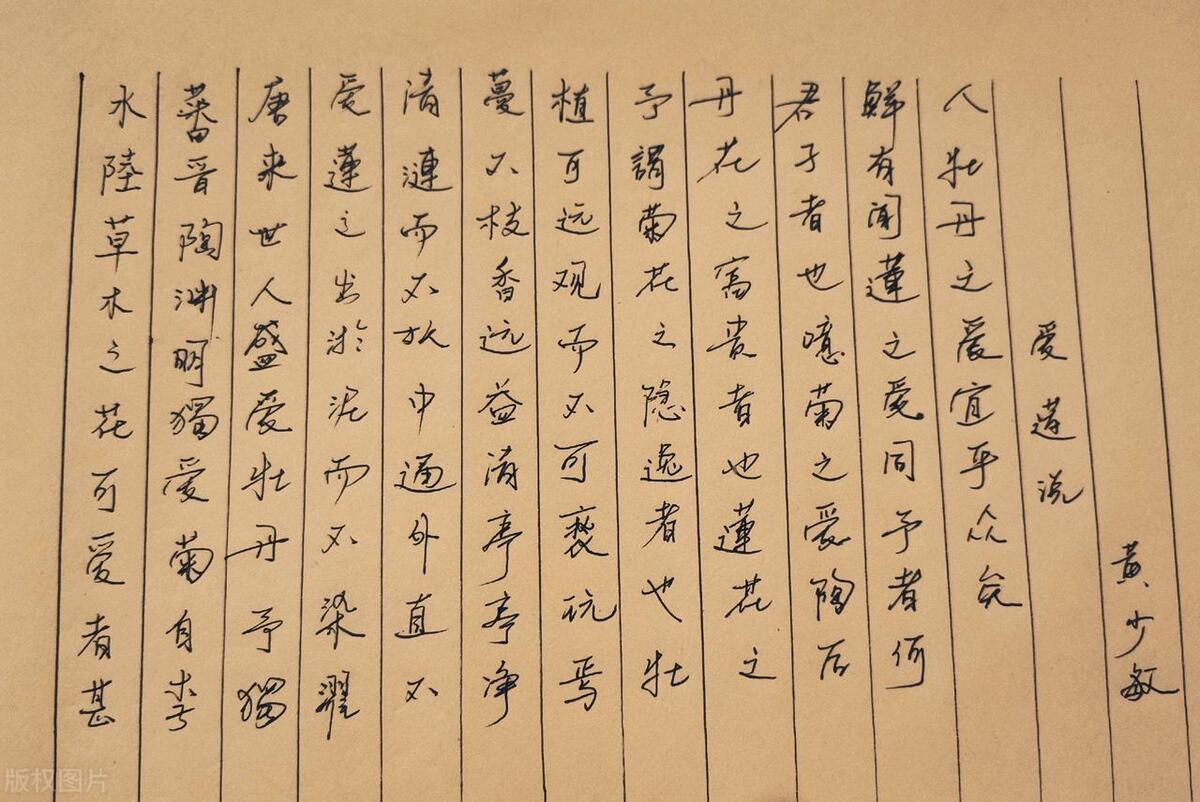 水陸草木之花可爱者甚
蕃晋陶渊明獨爱菊自李
唐来世人盛爱牡丹予獨
爱蓮之出淤泥而不染濯
清漣而不妖中通外直不
蔓不枝香远益清亭亭净
植可远观而不可亵玩焉
予謂菊花之隐逸者也牡
丹花之富贵者也蓮花之
君子者也噫菊之爱陶后
鮮有闻蓮之爱同予者何
人牡丹之爱宜乎众矣
爱莲说
黄少敏
版权图片